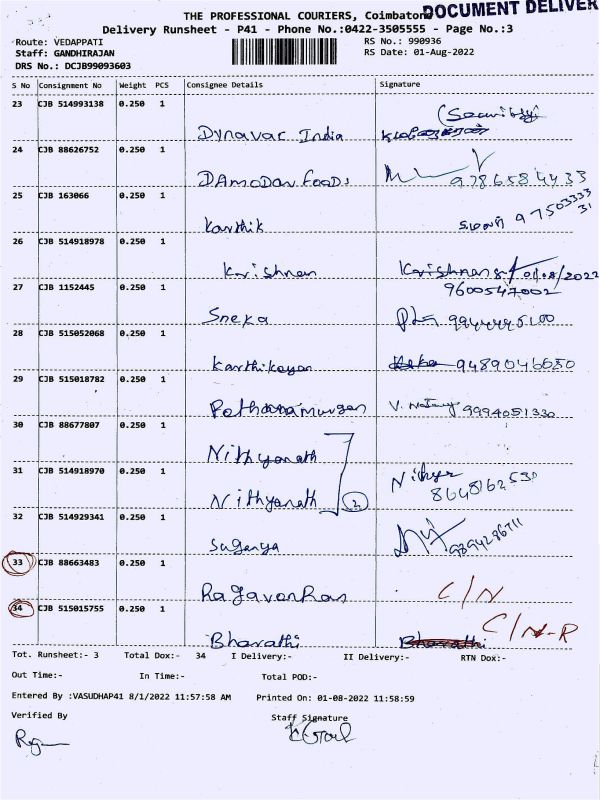 THE PROFESSIONAL COURIERS, Coimbatore
DOCUMENT DELIVER
Delivery Runsheet - P41 - Phone No.:0422-3505555 - Page No.:3
Route: VEDAPPATI
RS No.: 990936
Staff: GANDHIRAJAN
RS Date: 01-Aug-2022
DRS No.: DCJB99093603
S No Consignment No Weight PCS Consignee Details Signature
23 CJB 514993138 0.250 1 Dynavac India (Security)
24 CJB 88626752 0.250 1 DAmODAr FOODS 9786584433
25 CJB 163066 0.250 1 Karthik 9750333331
26 CJB 514918978 0.250 1 Krishnan Krishnan 01/08/2022
9600547002
27 CJB 1152445 0.250 1 Sneka
28 CJB 515052068 0.250 1 Karthikeyan 9489046080
29 CJB 515018782 0.250 1 V. Nataraj 9994051330
30 CJB 88677807 0.250 1 Nithyanath
31 CJB 514918970 0.250 1 Nithyanath 2 Nithya
32 CJB 514929341 0.250 1 Suganya
33 CJB 88663483 0.250 1 C/N
34 CJB 515015755 0.250 1 Bharathi Bharathi C/N-R
Tot. Runsheet:- 3 Total Dox:- 34 I Delivery:- II Delivery:- RTN Dox:-
Out Time:- In Time:- Total POD:-
Entered By :VASUDHAP41 8/1/2022 11:57:58 AM Printed On: 01-08-2022 11:58:59
Verified By Staff Signature